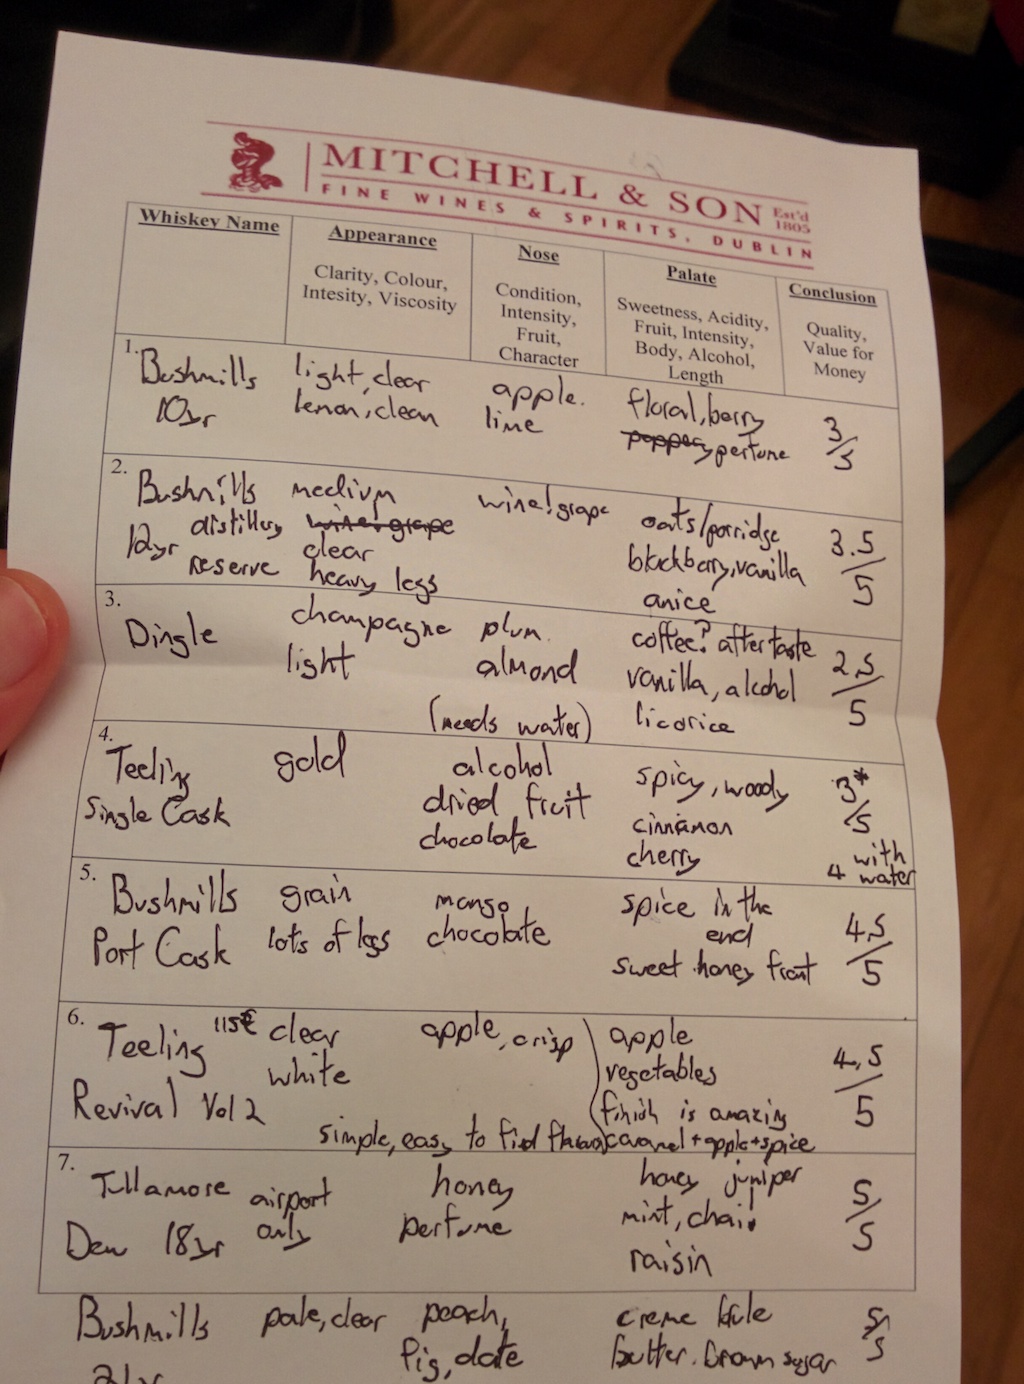 MITCHELL & SON Est'd 1805
FINE WINES & SPIRITS, DUBLIN
Whiskey Name
Appearance
Clarity, Colour,
Intesity, Viscosity
Nose
Condition,
Intensity,
Fruit,
Character
Palate
Sweetness, Acidity,
Fruit, Intensity,
Body, Alcohol,
Length
Conclusion
Quality,
Value for
Money
1.
Bushmills
10yr
light, clear
lemon, clean
apple.
lime
floral, berry
peppery perfume
3/5
2.
Bushmills
12yr distillery
reserve
medium
wine! grape
clear
heavy legs
wine! grape
oats/porridge
blackberry, vanilla
anice
3.5/5
3.
Dingle
champagne
light
plum.
almond
(needs water)
coffee? aftertaste
vanilla, alcohol
licorice
2,5/5
4.
Teeling
Single Cask
gold
alcohol
dried fruit
chocolate
spicy, woody
cinnamon
cherry
3*/5
4 with water
5.
Bushmills
Port Cask
grain
lots of legs
mango,
chocolate
spice in the
end
sweet honey front
4,5/5
6.
Teeling 115€
Revival Vol 2
clear
white
apple, crisp
simple, easy to find flavour
apple
vegetables
finish is amazing
caramel + apple + spice
4,5/5
7.
Tullamore
Dew 18yr
airport
only
honey
perfume
honey juniper
mint, chai.
raisin
5/5
Bushmills
21yr
pale, clear
peach,
fig, date
creme
butter. brown sugar
5/5